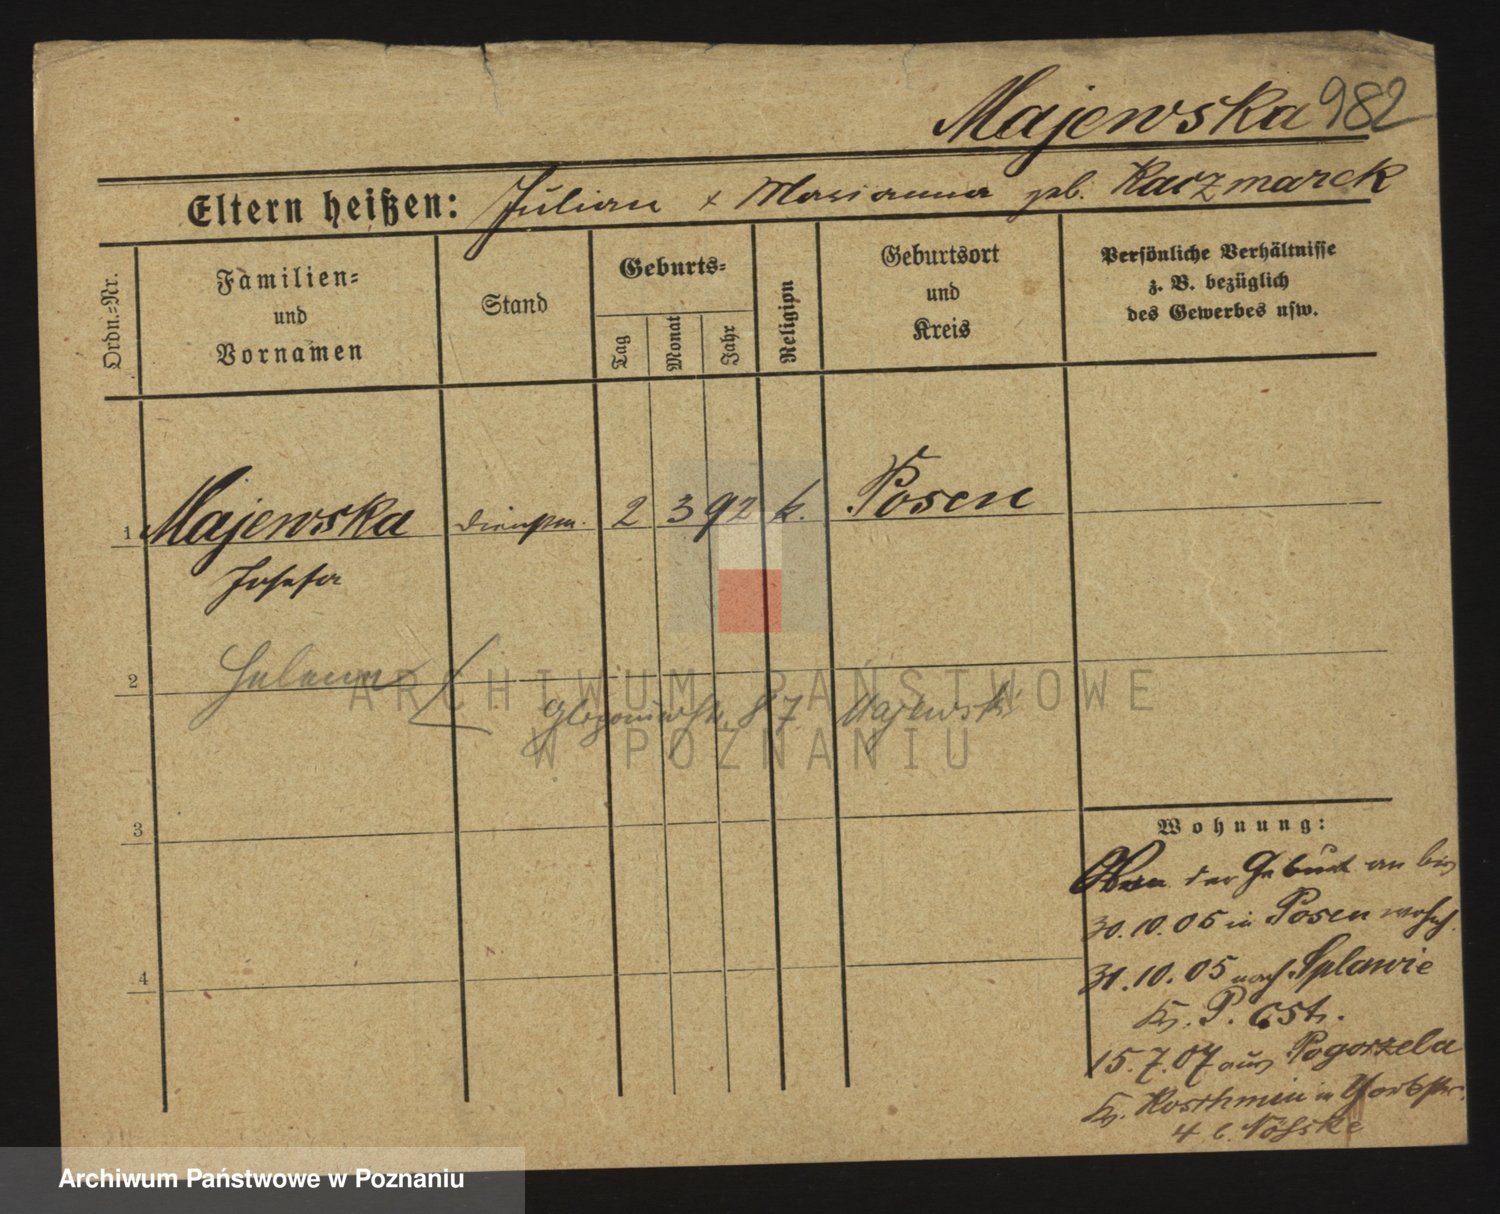 Majewska 982
Eltern heißen: Julian + Marianna geb. Kaczmarek
Ordn.-Nr.
Familien-
und
Vornamen
Stand
Geburts-
Tag
Monat
Jahr
Religion
Geburtsort
und
Kreis
Persönliche Verhältnisse
z. B. bezüglich
des Gewerbes usw.
1 Majewska Dienstm. 2 3 92 k. Posen
Josefa
2 Helena
87 Majewski
3
4
Wohnung:
der Geburt an bis
30.10.05 in Posen wohnh.
31.10.05 nach Splawie
Kr. P. Ost.
15.7.07 aus Pogorzela
Kr. Koschmin in
4 b.
ARCHIWUM PAŃSTWOWE
W POZNANIU
Archiwum Państwowe w Poznaniu